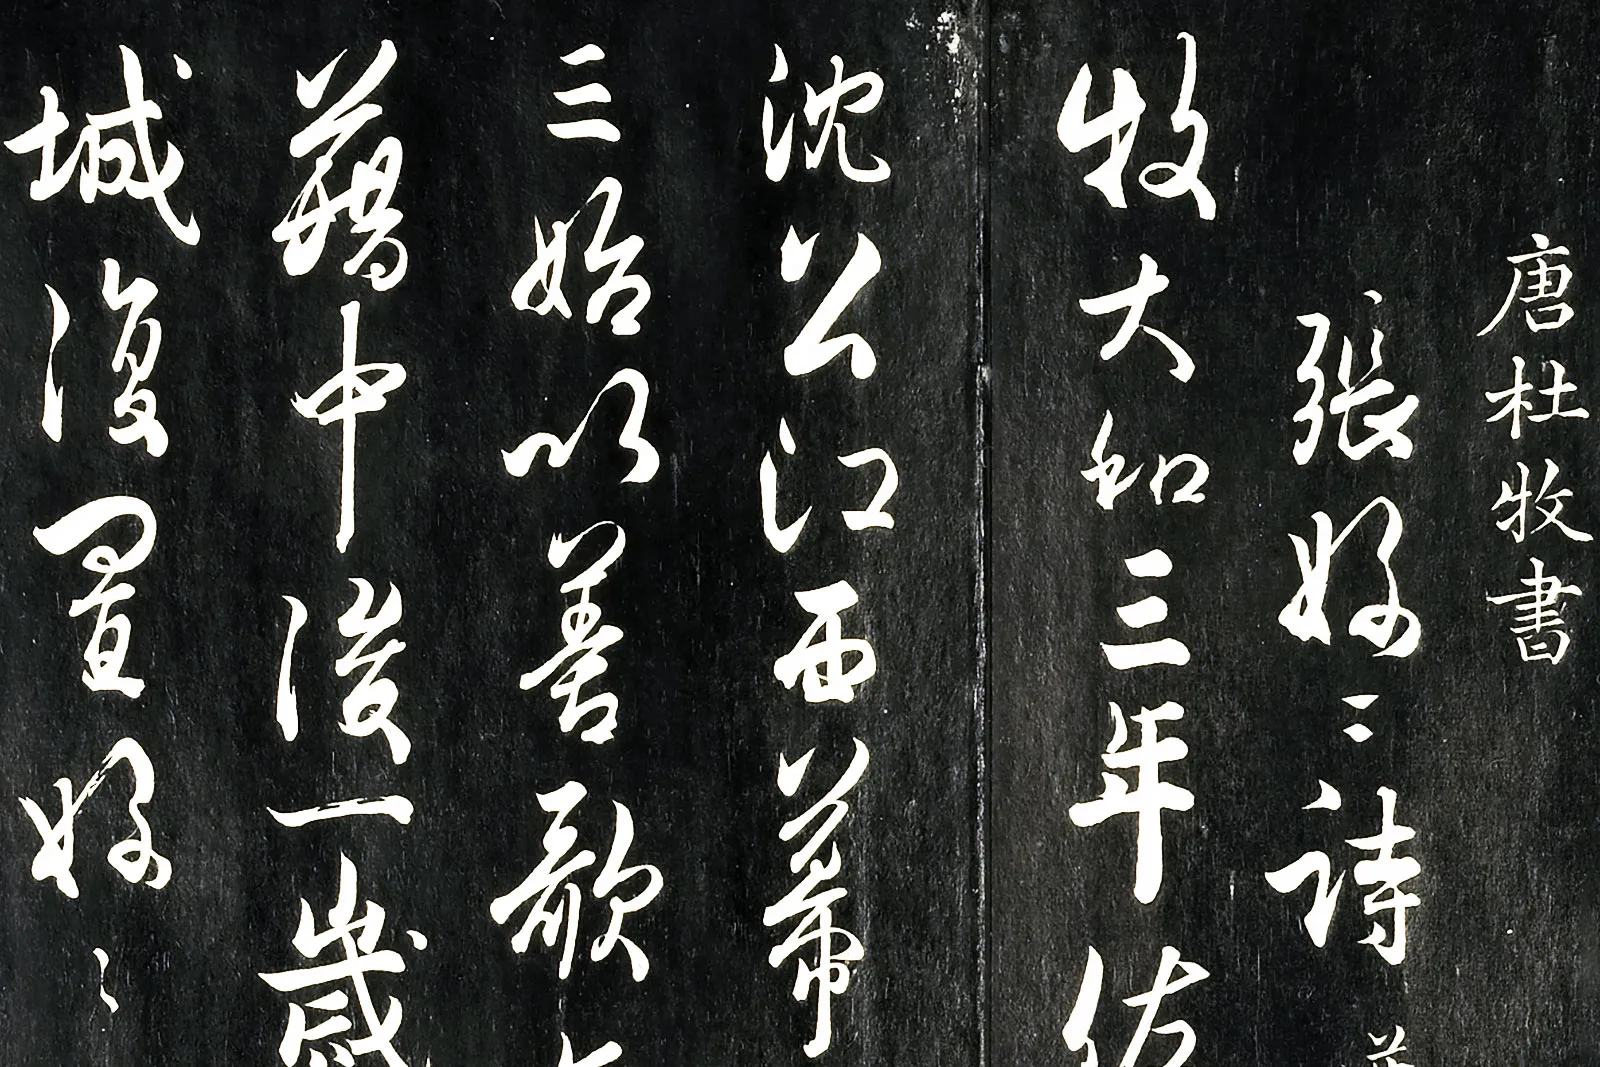 唐杜牧書
張好〻詩
牧大和三年佐
沈公江西幕
三始以善歌
籍中後一歲
城復置好〻